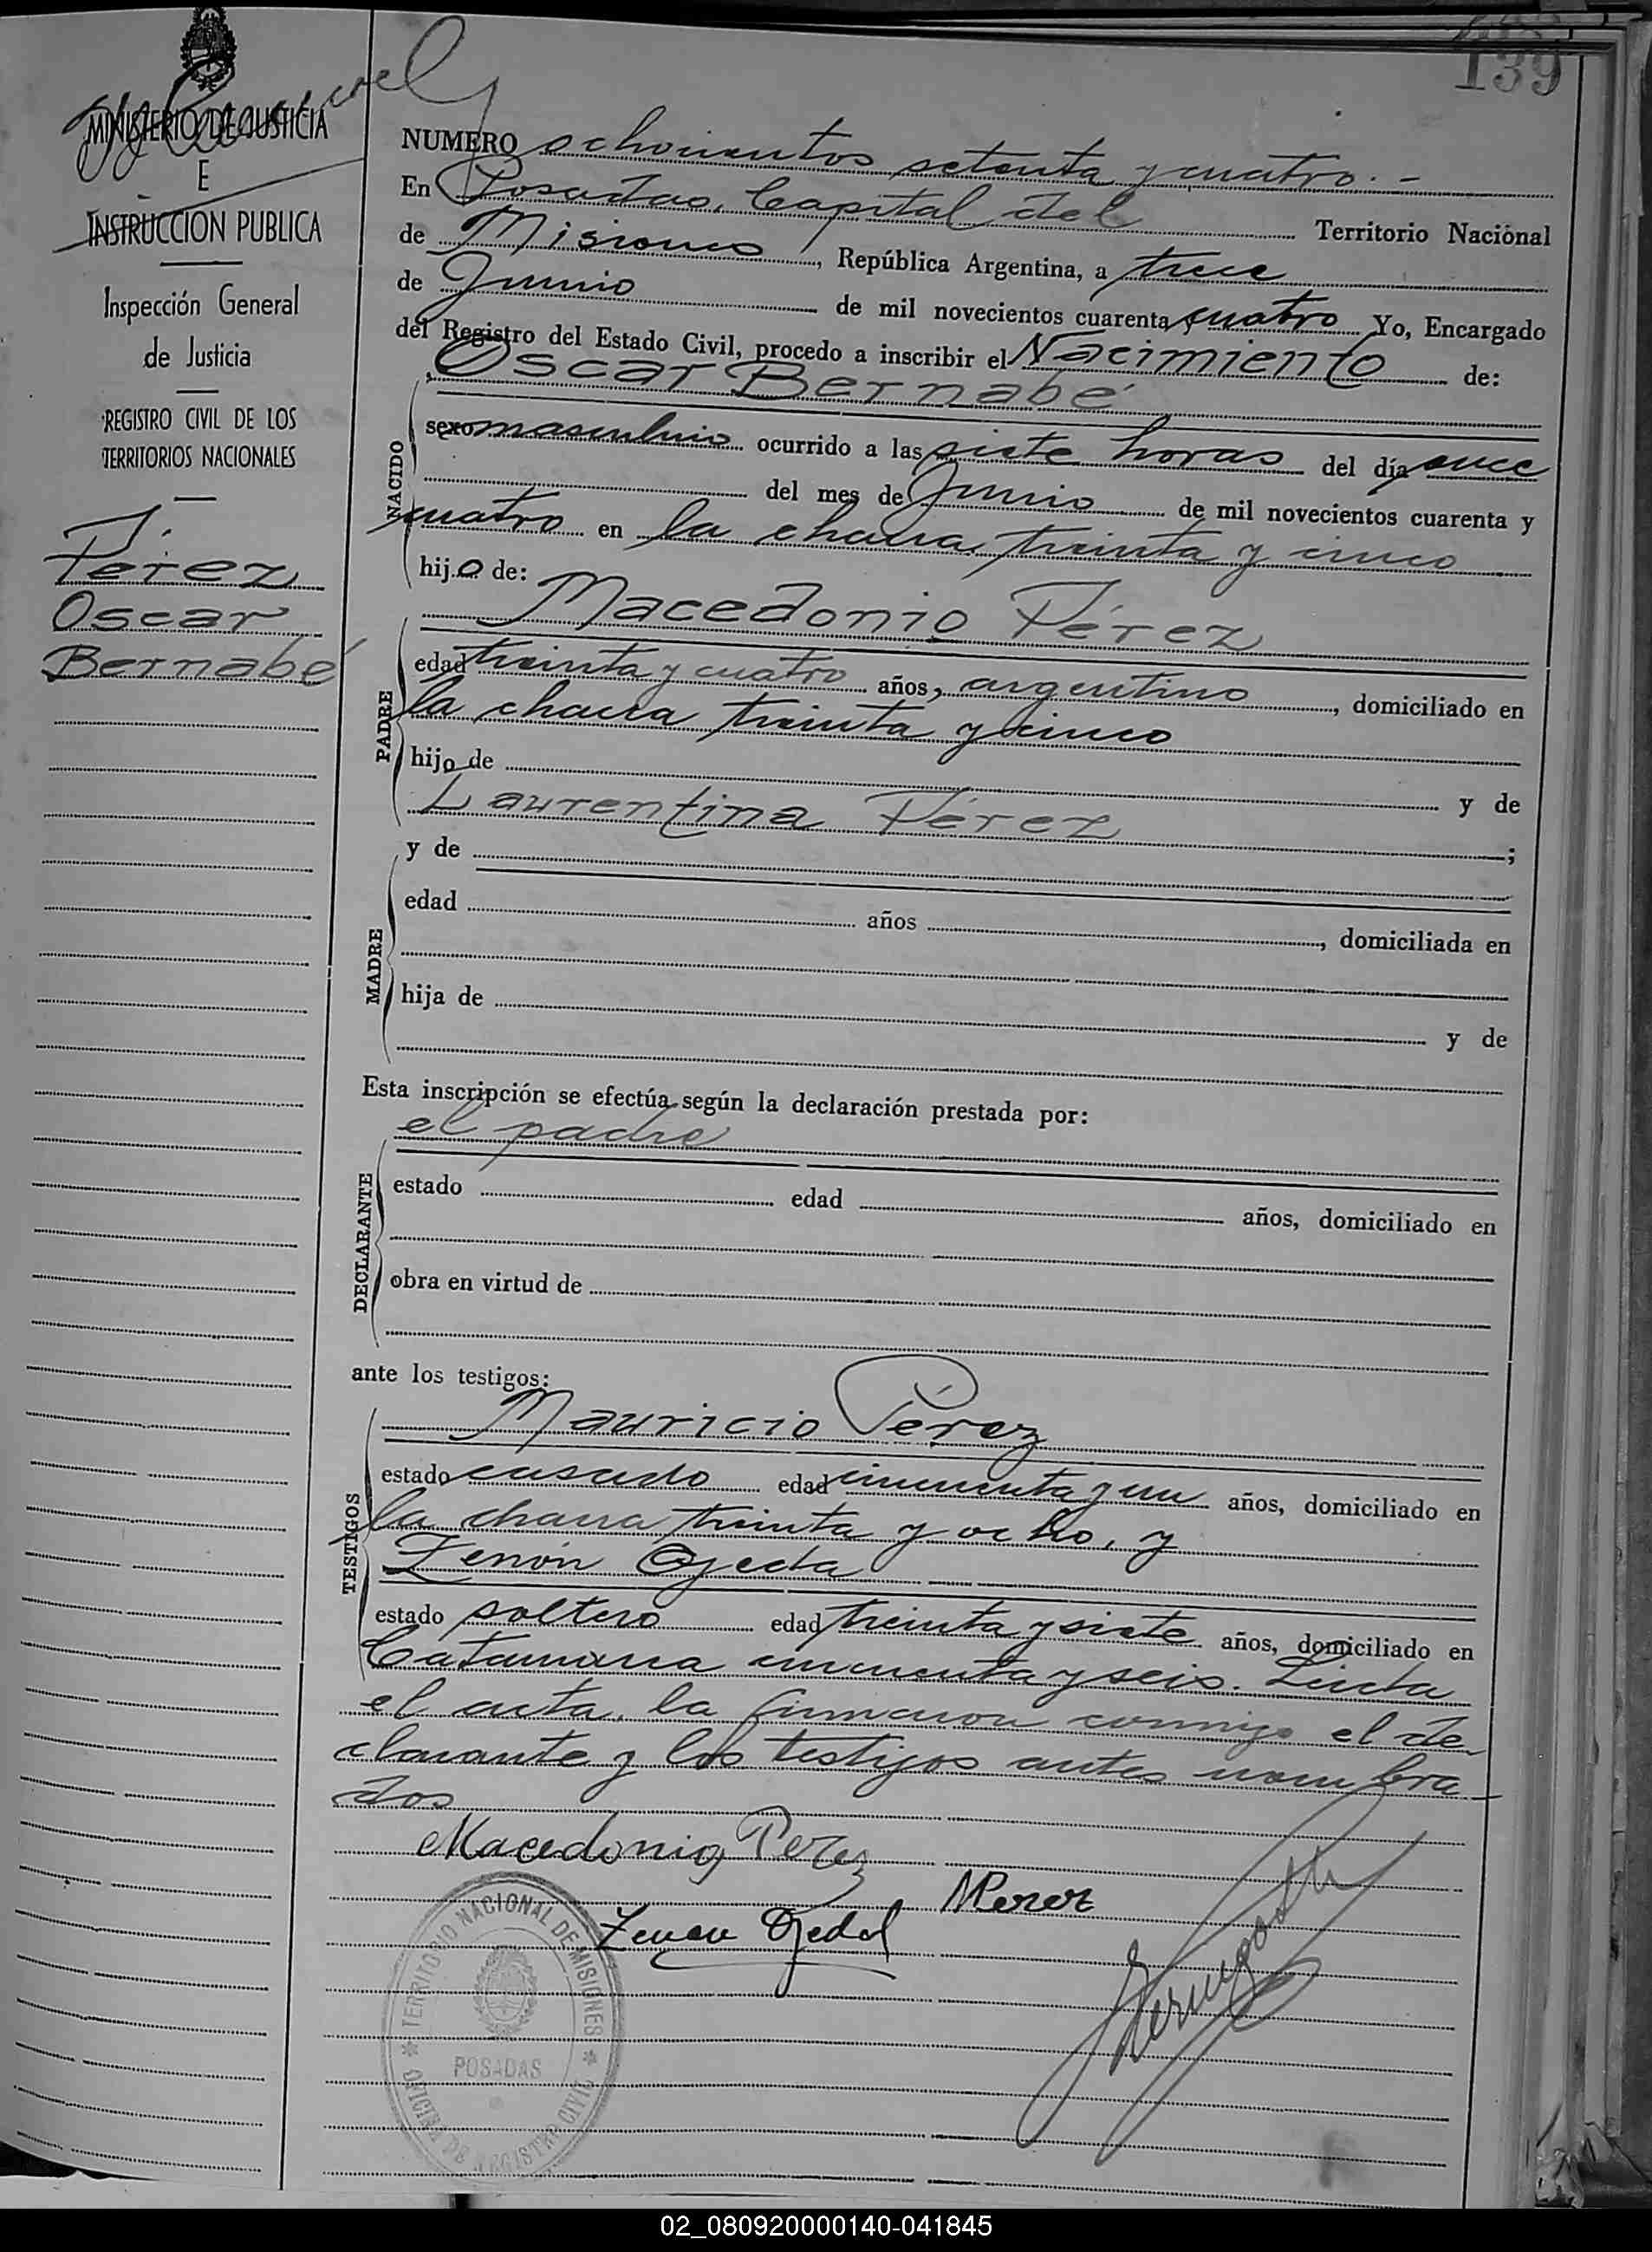 139
MINISTERIO DE JUSTICIA
E
INSTRUCCION PUBLICA
Inspección General
de Justicia
REGISTRO CIVIL DE LOS
TERRITORIOS NACIONALES
Pérez
Oscar
Bernabé
NUMERO ochocientos setenta y cuatro.-
En Posadas, Capital del Territorio Nacional
de Misiones, República Argentina, a trece
de Junio de mil novecientos cuarenta y cuatro Yo, Encargado
del Registro del Estado Civil, procedo a inscribir el Nacimiento de:
Oscar Bernabé
NACIDO
sexo masculino ocurrido a las siete horas del día once
del mes de Junio de mil novecientos cuarenta y
cuatro en la chacra treinta y cinco
hijo de:
Macedonio Pérez
PADRE
edad treinta y cuatro años, argentino, domiciliado en
la chacra treinta y cinco
hijo de y de
Laurentina Pérez ;
y de
MADRE
edad años , domiciliada en
hija de y de
Esta inscripción se efectúa según la declaración prestada por:
el padre
DECLARANTE
estado edad años, domiciliado en
obra en virtud de
ante los testigos:
Mauricio Pérez
TESTIGOS
estado casado edad cincuenta y un años, domiciliado en
la chacra treinta y ocho, y
Zenón Ojeda
estado soltero edad treinta y siete años, domiciliado en
Catamarca cincuenta y seis. Leída
el acta, la firmaron conmigo el de-
clarante y los testigos antes nombra-
dos
Macedonio Perez
MPerez
Zenon Ojeda
TERRITORIO NACIONAL DE MISIONES
POSADAS
OFICINA DE REGISTRO CIVIL
02_080920000140-041845